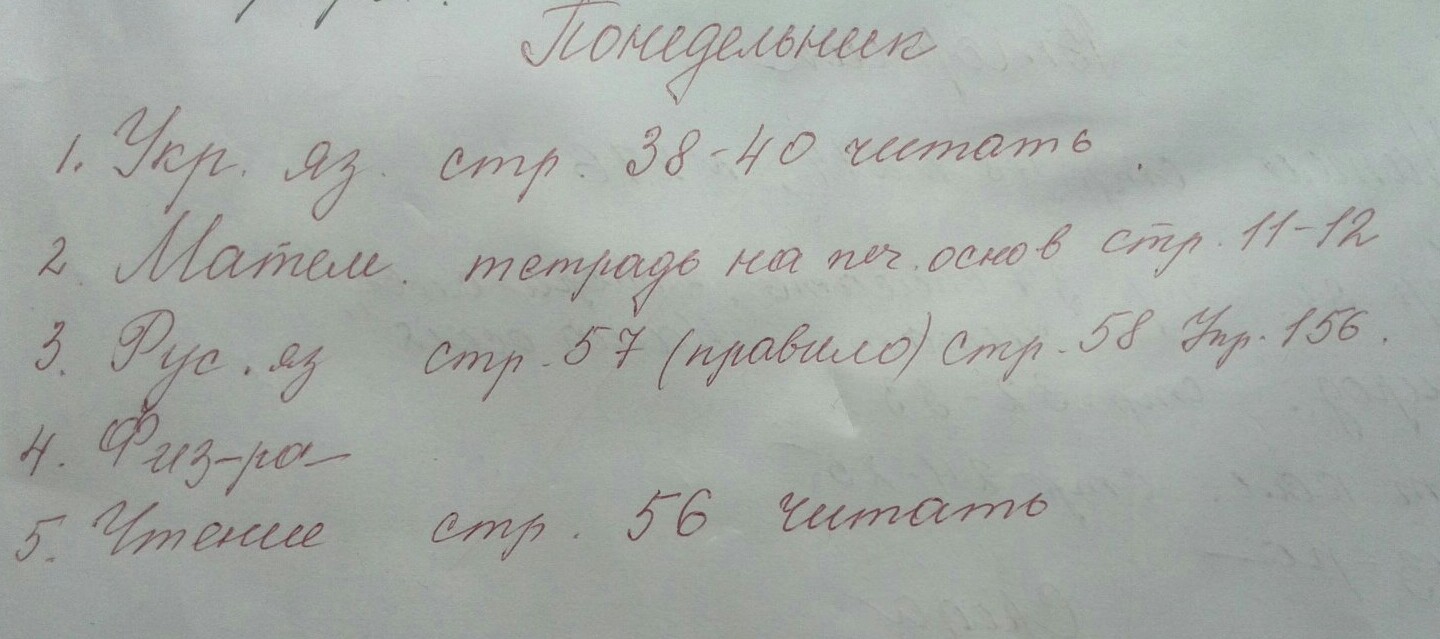 Понедельник
1. Укр. яз. стр. 38-40 читать
2 Матем. тетрадь на печ. основ стр. 11-12
3. Рус. яз стр. 57 (правило) стр. 58 Упр. 156.
4. Физ-ра
5. Чтение стр. 56 читать